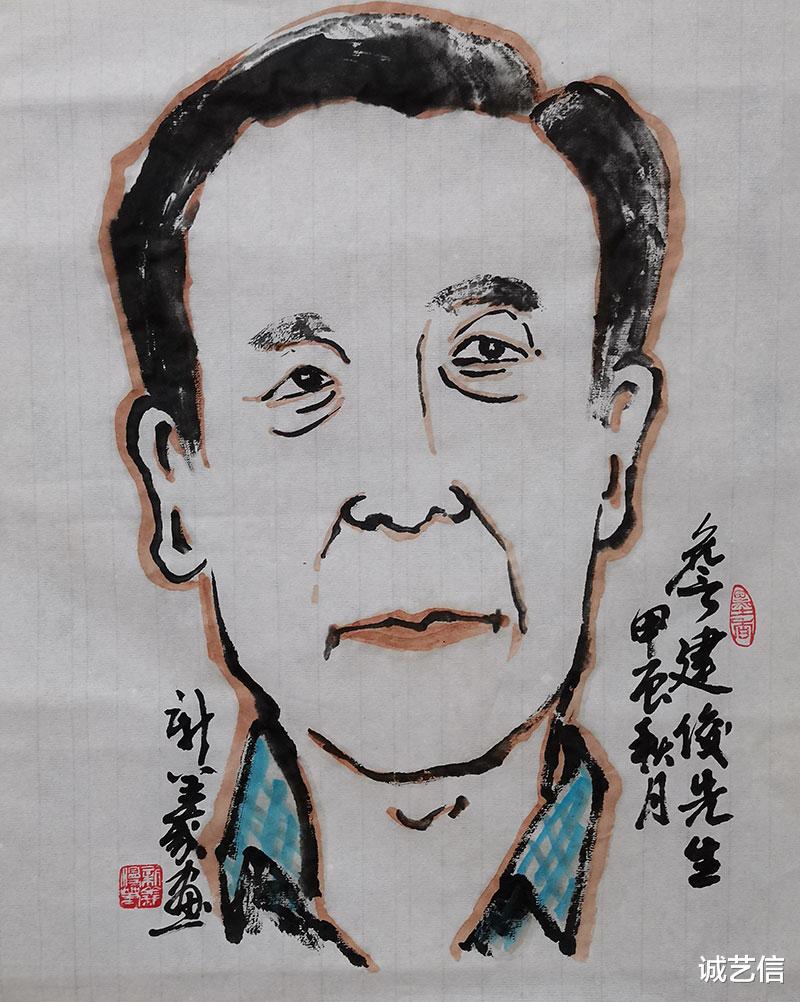 詹建俊先生
甲辰秋月
新义画
诚艺信